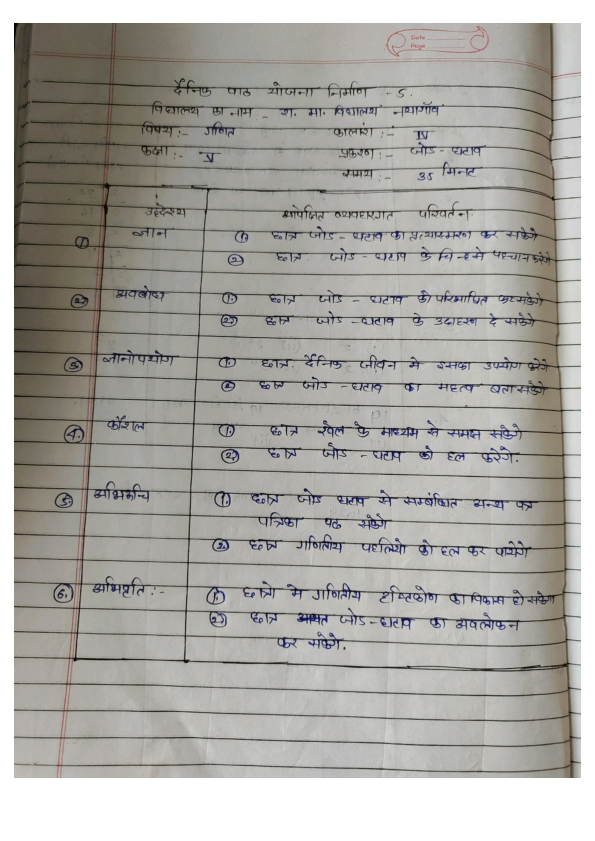 Date
Page
दैनिक पाठ योजना निर्माण - 5.
विद्यालय का नाम - रा. मा. विद्यालय नयागाँव
विषय :- गणित कालांश :- IV
कक्षा :- V प्रकरण :- जोड - घटाव
समय :- 35 मिनट
उद्देश्य अपेक्षित व्यवहारगत परिवर्तन
① ज्ञान ① छात्र जोड - घटाव का प्रत्यास्मरण कर सकेंगे
② छात्र जोड - घटाव के चिन्ह से पहचान करेंगे
② अवबोध ① छात्र जोड - घटाव को परिभाषित कर सकेंगे
② छात्र जोड - घटाव के उदाहरण दे सकेंगे
③ ज्ञानोपयोग ① छात्र दैनिक जीवन मे इसका उपयोग करेंगे
② छात्र जोड - घटाव का महत्व बता सकेंगे
④ कौशल ① छात्र खेल के माध्यम से समझ सकेंगे
② छात्र जोड - घटाव को हल करेंगे.
⑤ अभिरूचि ① छात्र जोड घटाव से सम्बंधित अन्य पत्र
पत्रिका पढ सकेंगे
② छात्र गणितीय पहेलियो को हल कर पायेंगे
⑥ अभिवृति :- ① छात्रो मे गणितीय दृष्टिकोण का विकास हो सकेगा
② छात्र जोड-घटाव का अवलोकन
कर सकेंगे.